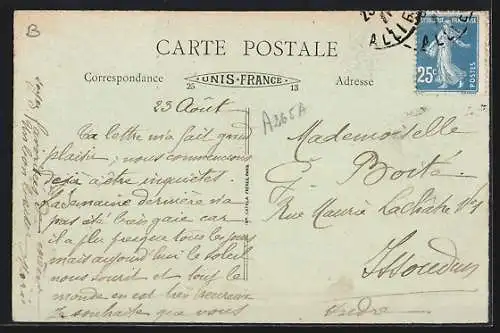 B
CARTE POSTALE
Correspondance
UNIS-FRANCE
25 13
Adresse
RÉPUBLIQUE FRANÇAISE
25c
POSTES
ALLIE
A265A
23 Août
Ta lettre m'a fait grand
plaisir, nous commencions
déjà à être inquiètes.
La semaine dernière n'a
pas été très gaie car
il a plu presque tous les jours
mais aujourd'hui le soleil
nous sourit et tout le
monde en est très heureux
Je souhaite que vous
Mademoiselle
G. Boité
Rue Maurice Lachâtre
Issoudun
Indre